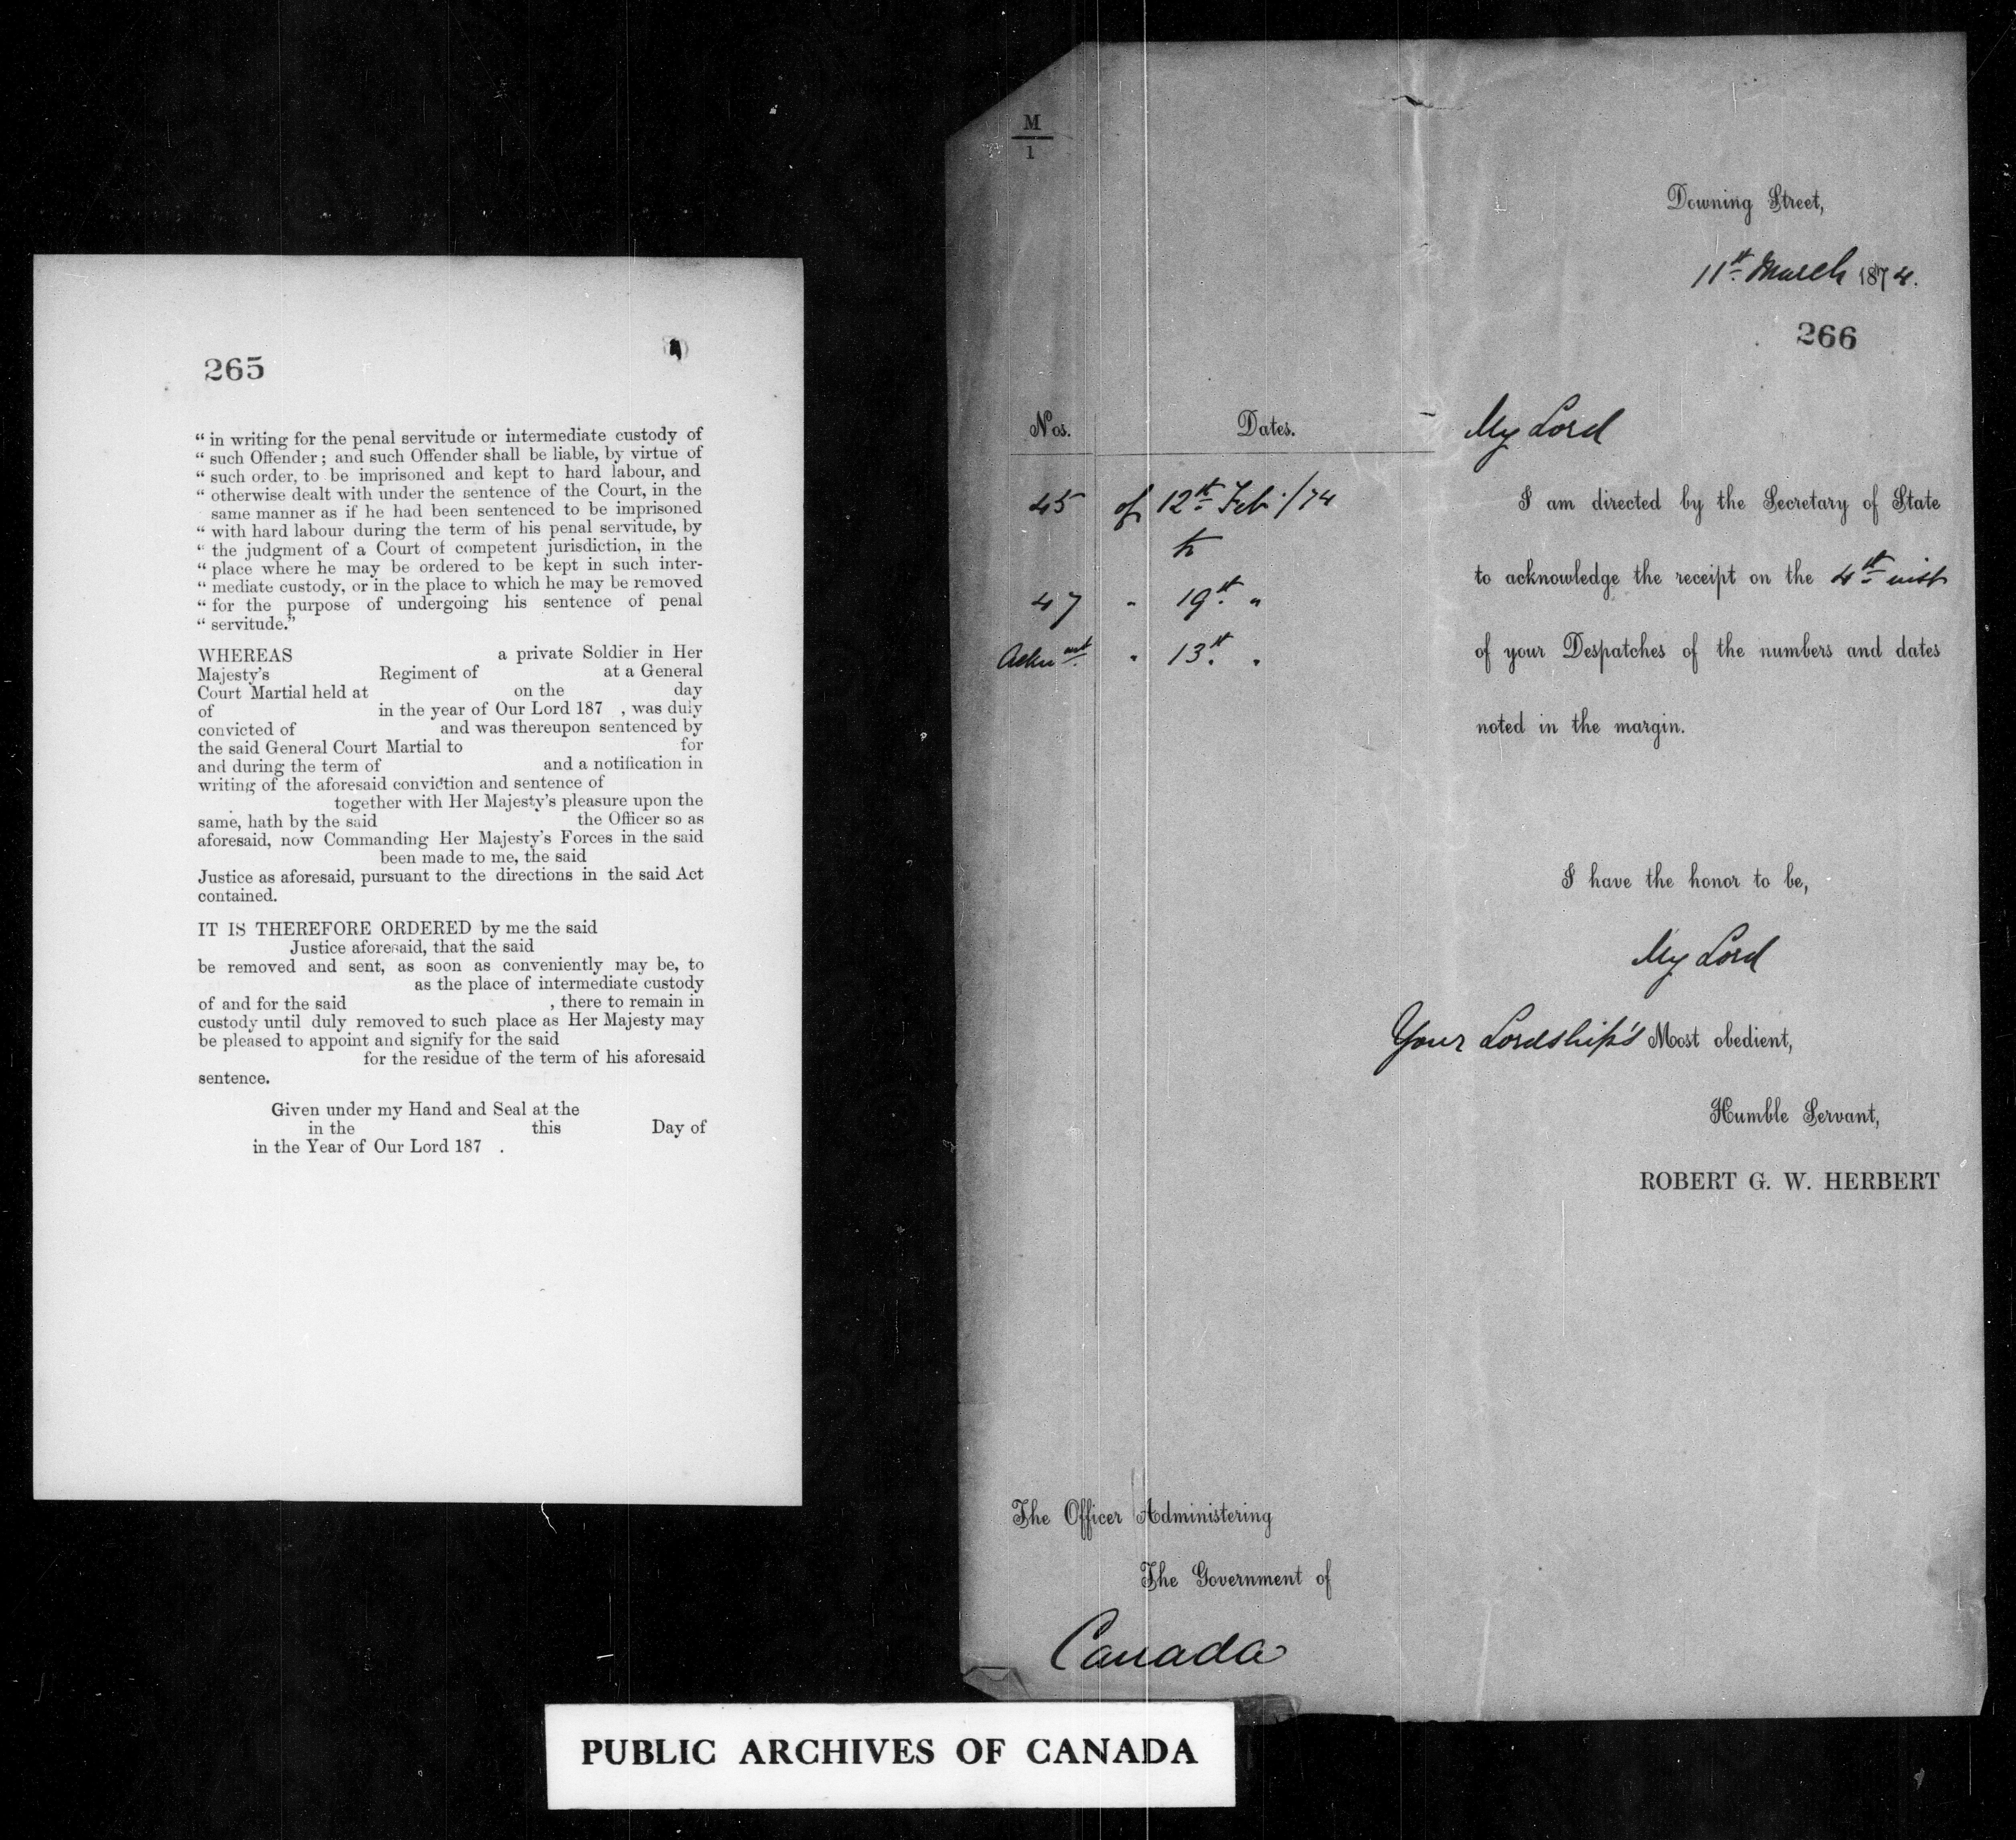 265
“ in writing for the penal servitude or intermediate custody of
“ such Offender ; and such Offender shall be liable, by virtue of
“ such order, to be imprisoned and kept to hard labour, and
“ otherwise dealt with under the sentence of the Court, in the
same manner as if he had been sentenced to be imprisoned
“ with hard labour during the term of his penal servitude, by
“ the judgment of a Court of competent jurisdiction, in the
“ place where he may be ordered to be kept in such inter-
“ mediate custody, or in the place to which he may be removed
“ for the purpose of undergoing his sentence of penal
“ servitude.”
WHEREAS a private Soldier in Her
Majesty's Regiment of at a General
Court Martial held at on the day
of in the year of Our Lord 187 , was duly
convicted of and was thereupon sentenced by
the said General Court Martial to for
and during the term of and a notification in
writing of the aforesaid conviction and sentence of
together with Her Majesty's pleasure upon the
same, hath by the said the Officer so as
aforesaid, now Commanding Her Majesty's Forces in the said
been made to me, the said
Justice as aforesaid, pursuant to the directions in the said Act
contained.
IT IS THEREFORE ORDERED by me the said
Justice aforesaid, that the said
be removed and sent, as soon as conveniently may be, to
as the place of intermediate custody
of and for the said , there to remain in
custody until duly removed to such place as Her Majesty may
be pleased to appoint and signify for the said
for the residue of the term of his aforesaid
sentence.
Given under my Hand and Seal at the
in the this Day of
in the Year of Our Lord 187 .
M
1
Downing Street,
11th March 1874.
266
Nos. Dates.
45 of 12th Feb./74
to
47 " 19th "
Acknmt " 13th "
My Lord
I am directed by the Secretary of State
to acknowledge the receipt on the 4th inst
of your Despatches of the numbers and dates
noted in the margin.
I have the honor to be,
My Lord
Your Lordship's Most obedient,
Humble Servant,
ROBERT G. W. HERBERT
The Officer Administering
The Government of
Canada
PUBLIC ARCHIVES OF CANADA